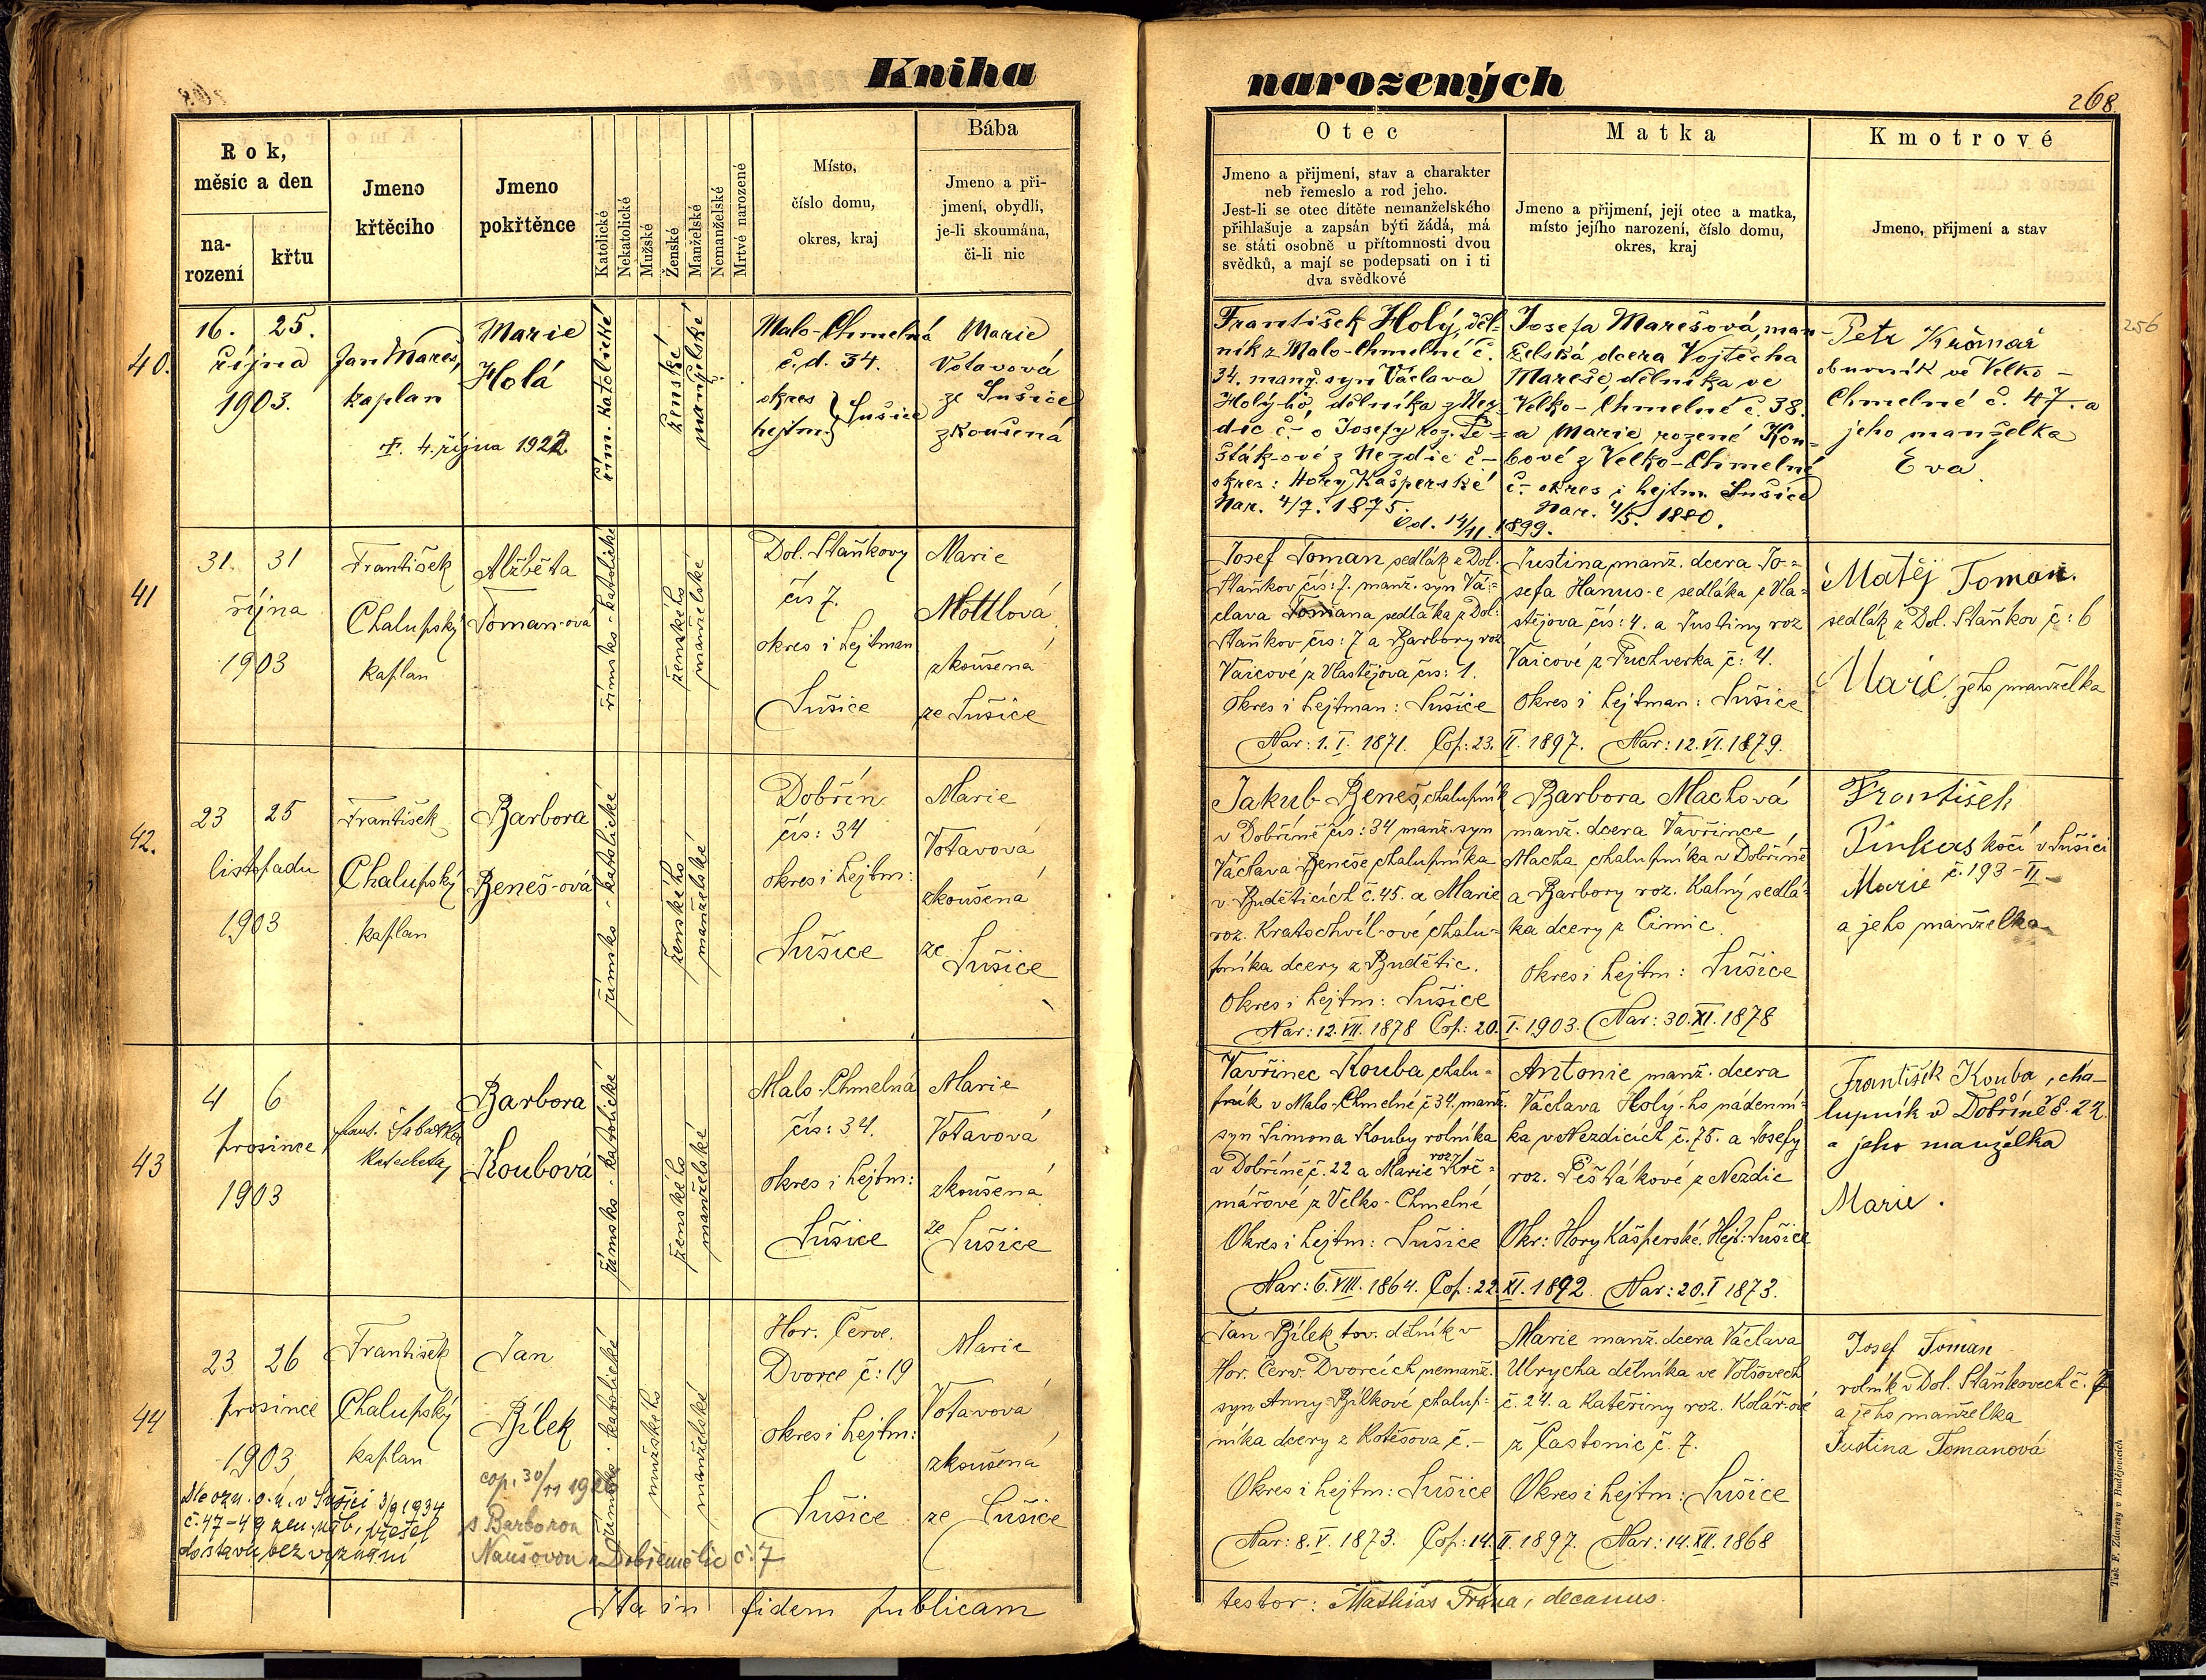 Kniha narozených
268
Rok, měsíc a den
na-
rození
křtu
Jmeno
křtěcího
Jmeno
pokřtěnce
Katolické
Nekatolické
Mužské
Ženské
Manželské
Nemanželské
Mrtvě narozené
Místo,
číslo domu,
okres, kraj
Bába
Jmeno a při-
jmení, obydlí,
je-li skoumána,
či-li nic
Otec
Jmeno a přijmení, stav a charakter
neb řemeslo a rod jeho.
Jest-li se otec dítěte nemanželského
přihlašuje a zapsán býti žádá, má
se státi osobně u přítomnosti dvou
svědků, a mají se podepsati on i ti
dva svědkové
Matka
Jmeno a přijmení, její otec a matka,
místo jejího narození, číslo domu,
okres, kraj
Kmotrové
Jmeno, přijmení a stav
40.
16. 25.
října
1903.
Jan Mareš,
kaplan
Marie
Holá
4. října 1922
řím. katolické
ženské
manželské
Malo-Chmelná
č.d. 34.
okres
hejtm. } Sušice
Marie
Votavová
ze Sušice
zkoušená
František Holý, děl-
ník z Malo-Chmelné č.
34. manž. syn Václava
Holý-ho, dělníka z Nez-
dic č. - o Josefy roz. Pe-
šták-ové z Nezdic č -
okres: Hory Kašperské
Nar. 4/7. 1875.
Od. 14/11. 1899.
Josefa Marešová, man-
želská dcera Vojtěcha
Mareše, dělníka ve
Velko-Chmelné č. 38.
a Marie rozené Kou-
bové z Velko-Chmelné
č.- okres i hejtm. Sušice
Nar. 4/5. 1880.
Petr Krčmář
obuvník ve Velko-
Chmelné č. 47. a
jeho manželka
Eva
256
41
31. 31
října
1903
František
Chalupský
kaplan
Alžběta
Toman-ová
římsko-katolické
ženského
manželské
Dol. Staňkovy
čís 7.
okres i hejtman
Sušice
Marie
Mottlová
zkoušená
ze Sušice
Josef Toman sedlák z Dol.
Staňkov čís: 7. manž. syn Vá-
clava Tomana sedláka z Dol.
Staňkov čís: 7 a Barbory roz
Vaicové z Vlastějova čís: 1.
Okres i hejtman: Sušice
Nar: 1. I. 1871. Cop: 23. II. 1897.
Justina, manž. dcera Jo-
sefa Hanus-e sedláka z Vla-
stějova čís: 4. a Justiny roz
Vaicové z Puchverka č: 4.
Okres i hejtman: Sušice
Nar: 12. VI. 1879.
Matěj Toman.
sedlák z Dol. Staňkov č: 6
Marie, jeho manželka
42.
23 25
listopadu
1903
František
Chalupský
kaplan
Barbora
Beneš-ová
římsko-katolické
ženského
manželské
Dobřín
čís: 34
okres i hejtm:
Sušice
Marie
Votavová
zkoušená
ze Sušice
Jakub Beneš, chalupník
v Dobříně čís: 34 manž. syn
Václava Beneše chalupníka
v Budětících č. 45. a Marie
roz. Kratochvíl-ové chalu-
pníka dcery z Budětic.
Okres i hejtm: Sušice
Nar: 12. VII. 1878 Cop: 20. I. 1903.
Barbora Machová
manž. dcera Vavřince
Macha, chalupníka v Dobříně
a Barbory roz. Kalný sedlá-
ka dcery z Čimic.
Okres i hejtm: Sušice
Nar: 30. XI. 1878
František
Pinkers kočí v Sušici
č. 193-II-
Marie
a jeho manželka
43
4 6
prosince
1903
katecheta
Barbora
Koubová
římsko-katolické
ženského
manželské
Malo-Chmelná
čís: 34.
okres i hejtm:
Sušice
Marie
Votavová
zkoušená
ze
Sušice
Vavřinec Kouba, chalu-
pník v Malo-Chmelné č 34. manž.
syn Šimona Kouby rolníka
v Dobříně č. 22 a Marie roz Krč-
mářové z Velko-Chmelné
Okres i hejtm: Sušice
Nar: 6. VIII. 1864. Cop: 22. XI. 1892
Antonie manž. dcera
Václava Holý-ho nádenní-
ka v Nezdicích č. 75. a Josefy
roz. Pešťákové z Nezdic
Okr: Hory Kašperské. Hejt: Sušice
Nar: 20. I 1873.
František Kouba, cha-
lupník v Dobříně č. 22.
a jeho manželka
Marie.
44
23 26
prosince
1903
František
Chalupský
kaplan
Jan
Bílek
římsko-katolické
mužského
manželské
Hor. Červ.
Dvorce č: 19
okres i hejtm:
Sušice
Marie
Votavová
zkoušená
ze Sušice
Jan Bílek tov. dělník v
Hor. Červ. Dvorcích nemanž.
syn Anny Bílkové chalup-
níka dcery z Kotěšova č. -
Okres i hejtm: Sušice
Nar: 8. V. 1873. Cop: 14. II. 1897.
Marie manž. dcera Václava
Ulrycha dělníka ve Volšovech
č. 24. a Kateřiny roz. Kolář-ové
z Častonic č. 7.
Okres i hejtm: Sušice
Nar: 14. XII. 1868
Josef Toman
rolník v Dol. Staňkovech č. 7
a jeho manželka
Justina Tomanová
Dle ozn. o. ú. v Sušici 3/9 1934
č. 47-49 zem. náb. přešel
do stavu bez vyznání
cop. 30/11
s Barborou
Naušovou z Dobřemělic č. 7
Ita in fidem publicam
testor: Mathias Frána, decanus.
Tisk F. Zdarssy v Budějovicích